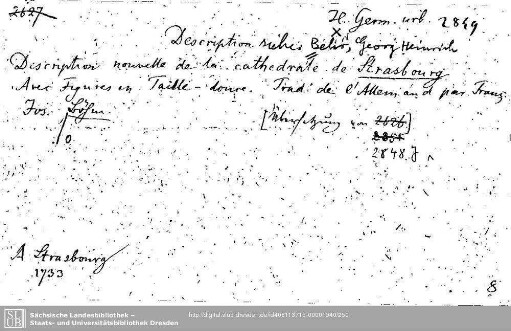 2627
H. Germ. urb. 2849
Description siehe: Behr, Georg Heinrich
Description nouvelle de la cathedrale de Strasbourg
Avec Figures en Taille-douce. Trad. de l'Allemand par Franç.
Jos. Böhm
[Übersetzung von 2626]
2848.]
A Strasbourg
1733
8
SLUB
Sächsische Landesbibliothek –
Staats- und Universitätsbibliothek Dresden